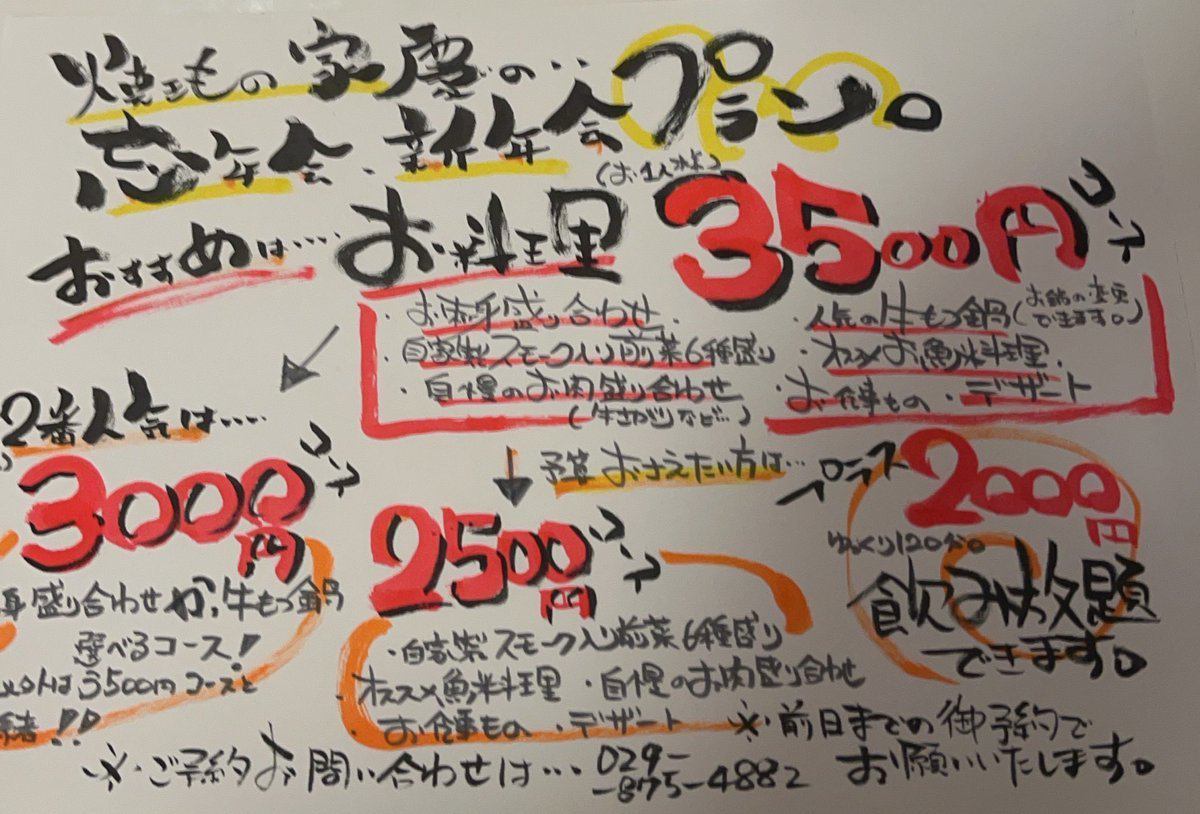 焼きもの 家慶の‥
忘年会、新年会プラン。
おすすめは‥‥ お料理 (お1人さま) 3500円コース
・お刺身盛り合わせ ・人気の牛もつ鍋(お鍋の変更できます。)
・自家製スモーク入り前菜6種盛り ・オススメお魚料理
・自慢のお肉盛り合わせ ・お食事もの ・デザート
(牛さがりなど‥)
2番人気は‥‥
3000円コース
身盛り合わせか、牛もつ鍋
選べるコース!
以外は3500円コースと
緒!!
予算おさえたい方は‥
2500円コース
・自家製スモーク入り前菜6種盛り
・オススメ魚料理 ・自慢のお肉盛り合わせ
・お食事もの ・デザート
プラス2000円
ゆっくり120分。
飲み放題
できます。
※・前日までの御予約で
お願いいたします。
※・ご予約お問い合わせは‥‥029-
-875-4882